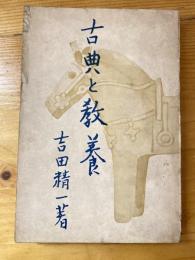 古典と教養
吉田精一著